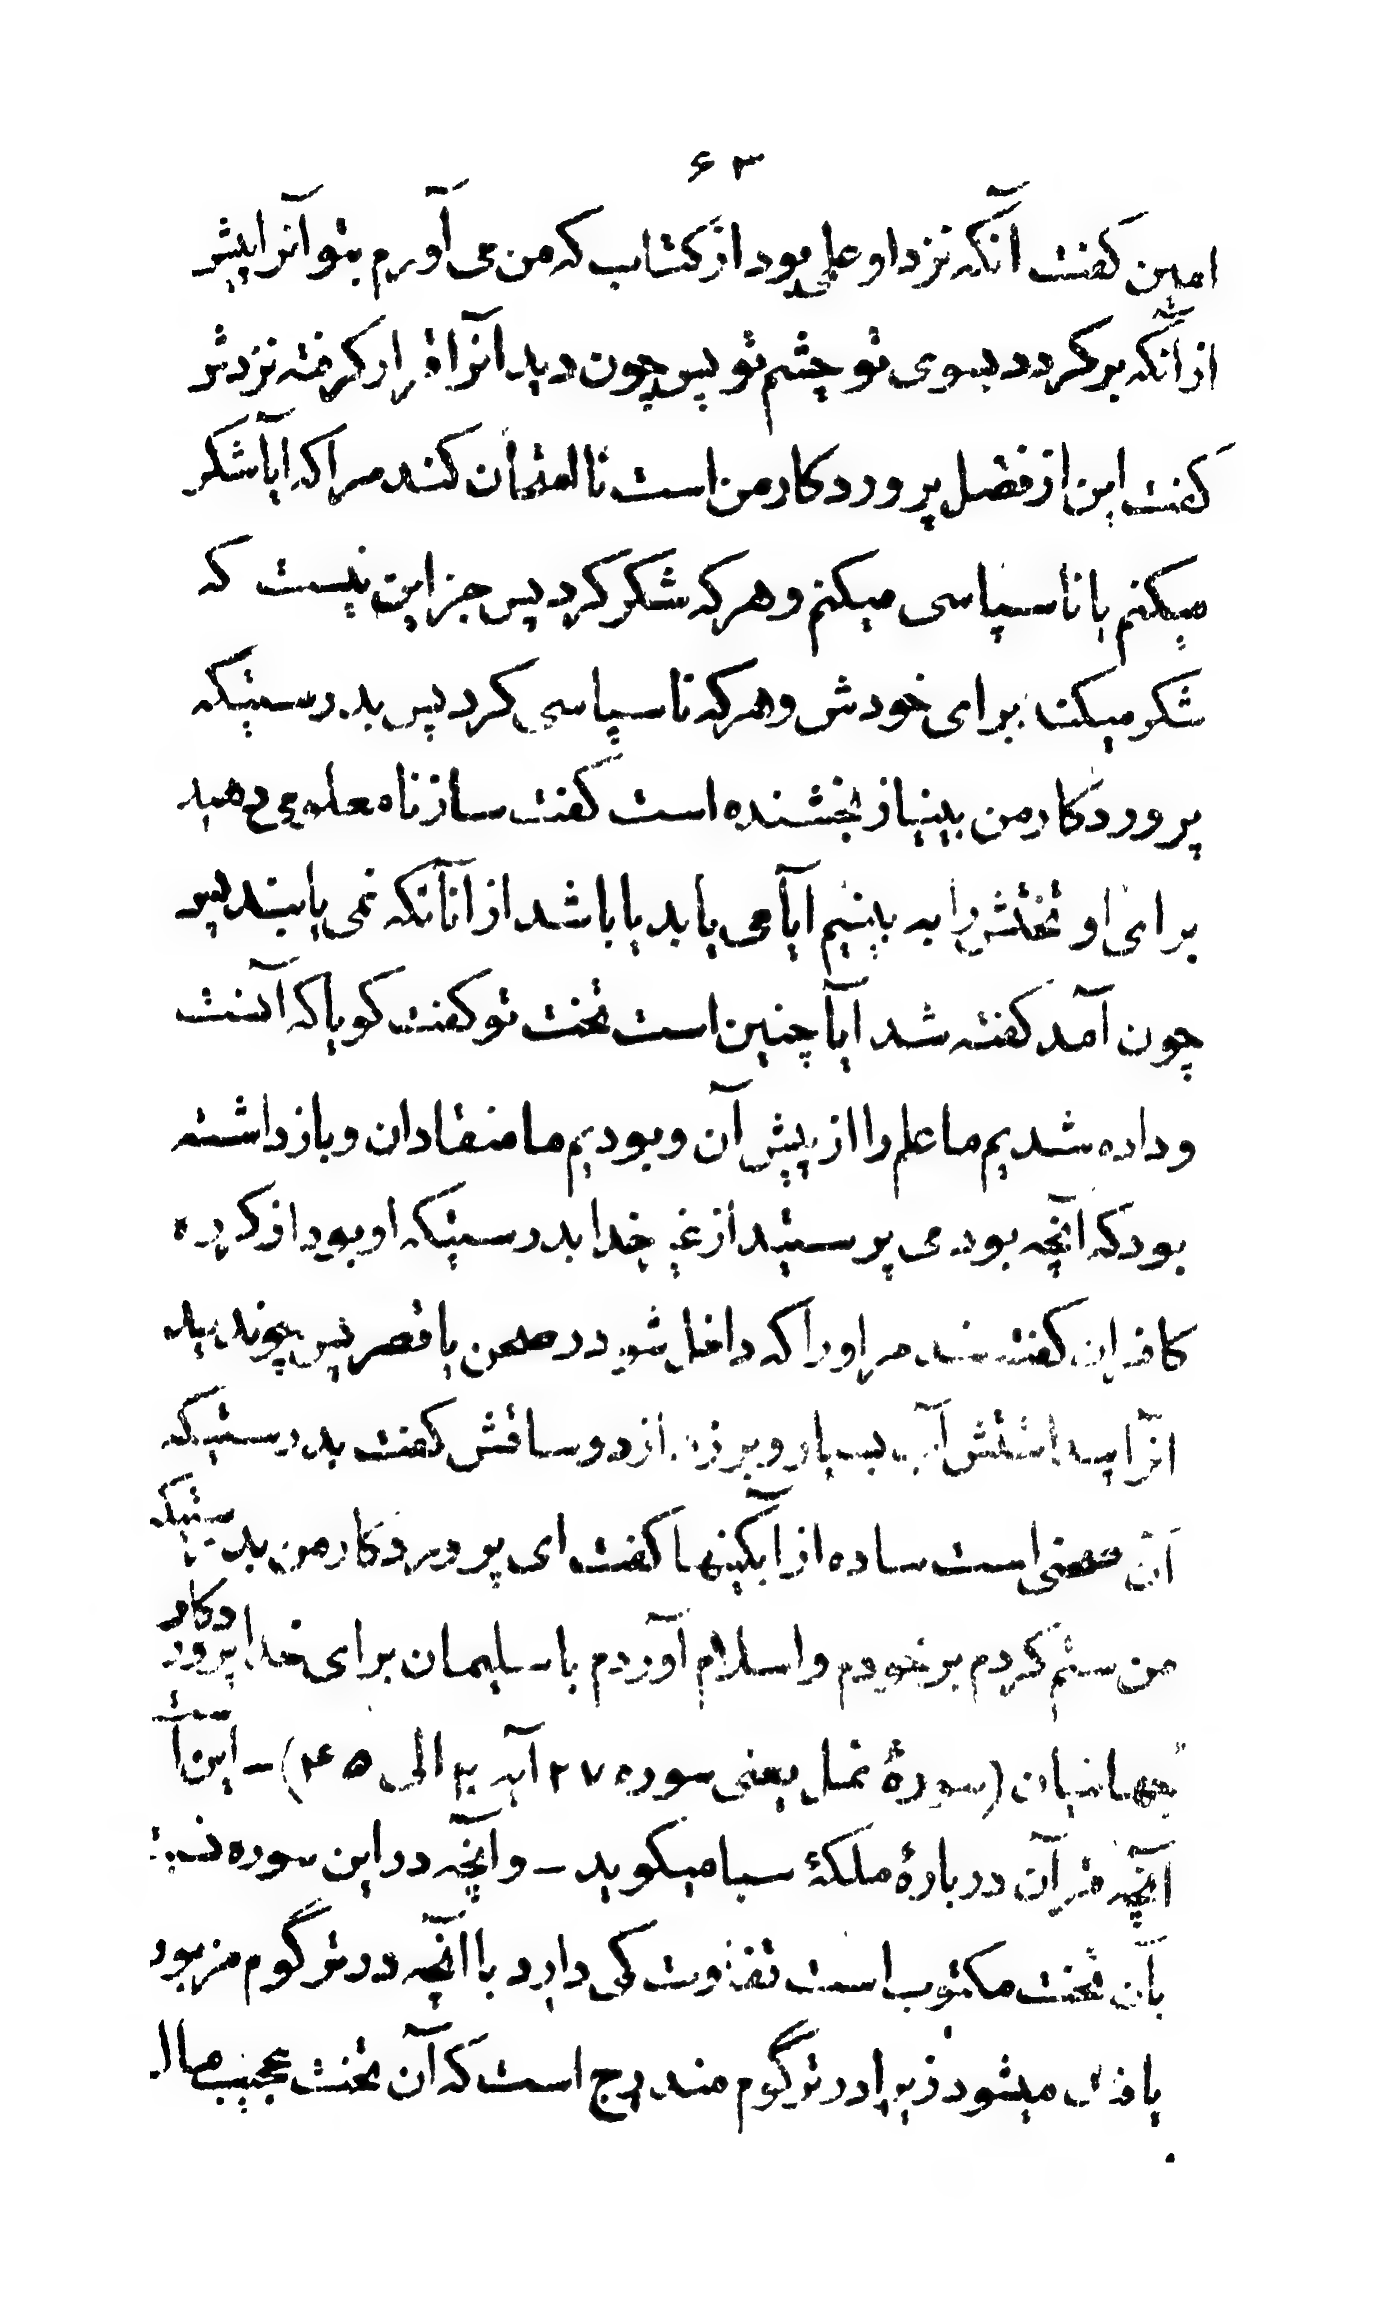 ۶۳
امین گفت آنکه نزد او علمی بود از کتاب که من می آورم بتو آنرا پیش
از آنکه برگردد بسوی تو چشم تو پس چون دید آنرا قرار گرفته نزدش
گفت این از فضل پروردگار من است تا امتحان کند مرا که آیا شکر
میکنم یا ناسپاسی میکنم و هرکه شکر کرد پس جز این نیست که
شکر میکند برای خودش و هرکه ناسپاسی کرد پس بدرستیکه
پروردگار من بینیاز بخشنده است گفت ناشناسا سازید
برای او تختش را به بینیم آیا می یابد یا باشد از آنانکه نمی یابند پس
چون آمد گفته شد آیا چنین است تخت تو گفت گویا که آنست
و داده شدیم ما علم را از پیش آن و بودیم ما منقادان و بازداشته
بود که آنچه بود می پرستید از غیر خدا بدرستیکه او بود از گروه
کافران گفته شد مر او را که داخل شو در صحن یا قصر پس چون دید
آنرا پنداشتش آب بسیار و برزد از دو ساقش گفت بدرستیکه
آن صحنی است ساده از آبگینها گفت ای پروردگار من بدرستیکه
من ستم کردم بر خودم و اسلام آوردم با سلیمان برای خدا پروردگار
جهانیان (سورهٔ نمل یعنی سوره ۲۷ آیه ۲۰ الی ۴۵) ـ این است
آنچه قرآن دربارهٔ ملکهٔ سبا میگوید ـ و آنچه در این سوره نسبت
بآن تخت مکتوب است تفاوت کمی دارد با آنچه در ترگوم مزبور
یافت میشود زیرا در ترگوم مندرج است که آن تخت عجیب مال